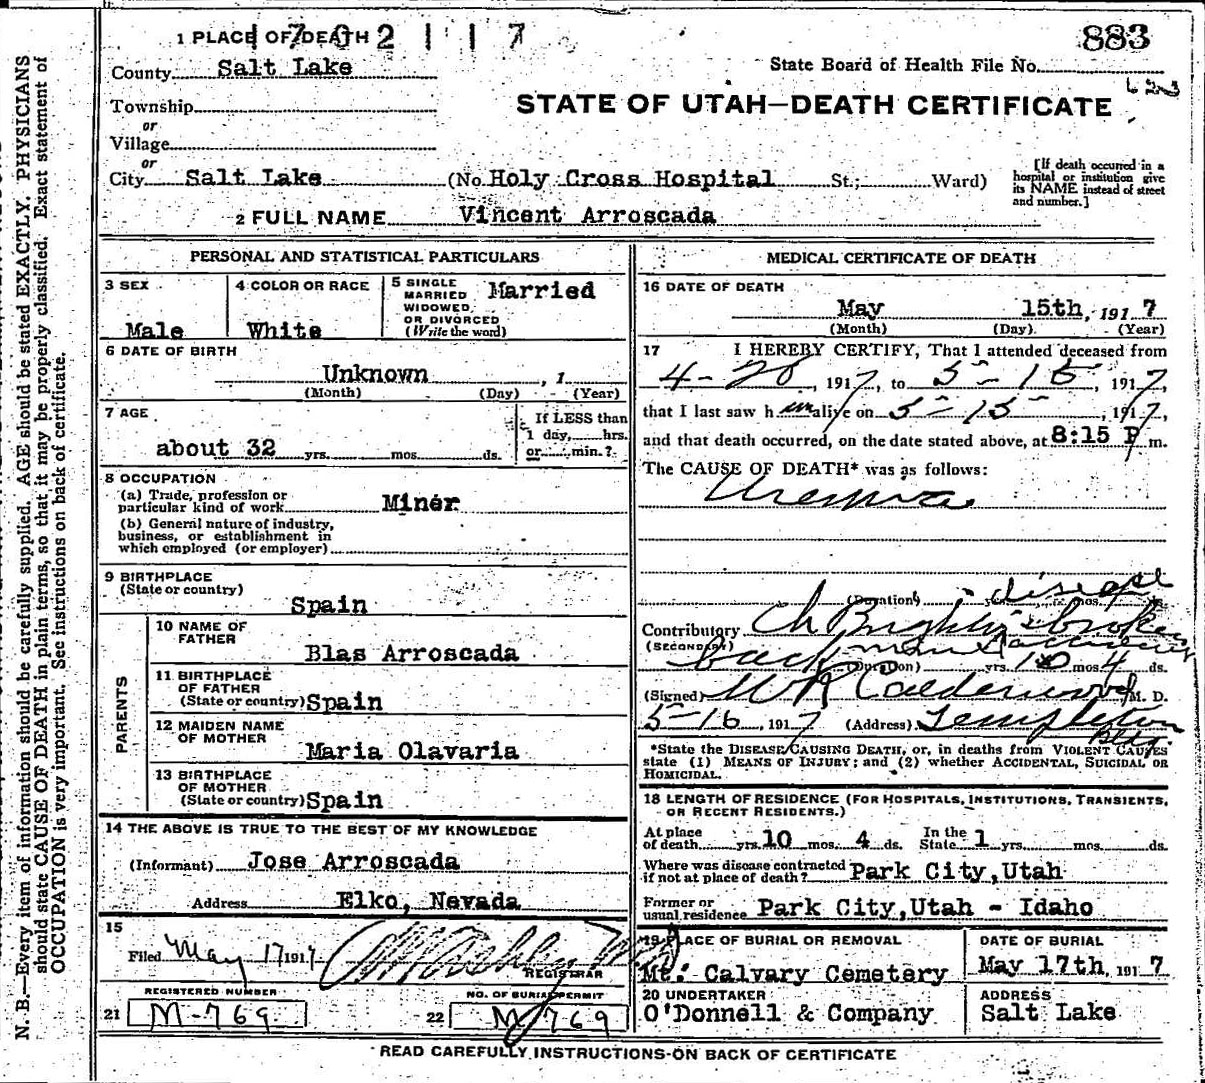 1 PLACE OF DEATH 1 7 0 2 1 1 7
883
County Salt Lake
State Board of Health File No.
Township
STATE OF UTAH—DEATH CERTIFICATE
or
Village
or
City Salt Lake (No. Holy Cross Hospital St.; Ward)
[If death occurred in a hospital or institution give its NAME instead of street and number.]
2 FULL NAME Vincent Arroscada
PERSONAL AND STATISTICAL PARTICULARS
3 SEX
Male
4 COLOR OR RACE
White
5 SINGLE
MARRIED
WIDOWED,
OR DIVORCED
(Write the word)
Married
6 DATE OF BIRTH
Unknown , 1
(Month) (Day) (Year)
7 AGE
about 32 yrs. mos. ds.
If LESS than
1 day, hrs.
or min.?
8 OCCUPATION
(a) Trade, profession or
particular kind of work Miner
(b) General nature of industry,
business, or establishment in
which employed (or employer)
9 BIRTHPLACE
(State or country)
Spain
PARENTS
10 NAME OF
FATHER
Blas Arroscada
11 BIRTHPLACE
OF FATHER
(State or country) Spain
12 MAIDEN NAME
OF MOTHER
Maria Olavaria
13 BIRTHPLACE
OF MOTHER
(State or country) Spain
14 THE ABOVE IS TRUE TO THE BEST OF MY KNOWLEDGE
(Informant) Jose Arroscada
Address Elko, Nevada
15
Filed May 17 1917
REGISTRAR
REGISTERED NUMBER
21 M-769
NO. OF BURIAL PERMIT
22 M-769
MEDICAL CERTIFICATE OF DEATH
16 DATE OF DEATH
May 15th, 1917
(Month) (Day) (Year)
17 I HEREBY CERTIFY, That I attended deceased from
4-28, 1917, to 5-15, 1917,
that I last saw him alive on 5-15, 1917,
and that death occurred, on the date stated above, at 8:15 P m.
The CAUSE OF DEATH* was as follows:
Uremia
(Duration) yrs. mos. ds.
disease
Contributory Ch Brights broken
(SECONDARY)
back
(Duration) yrs. 10 mos. 4 ds.
(Signed) W R Calderwood M. D.
5-16, 1917 (Address) Templeton
Bldg
*State the DISEASE CAUSING DEATH, or, in deaths from VIOLENT CAUSES
state (1) MEANS OF INJURY; and (2) whether ACCIDENTAL, SUICIDAL OR
HOMICIDAL.
18 LENGTH OF RESIDENCE (FOR HOSPITALS, INSTITUTIONS, TRANSIENTS,
OR RECENT RESIDENTS.)
At place
of death yrs. 10 mos. 4 ds.
In the
State 1 yrs. mos. ds.
Where was disease contracted
if not at place of death? Park City, Utah
Former or
usual residence Park City, Utah - Idaho
19 PLACE OF BURIAL OR REMOVAL
Mt. Calvary Cemetery
DATE OF BURIAL
May 17th, 1917
20 UNDERTAKER
O'Donnell & Company
ADDRESS
Salt Lake
READ CAREFULLY INSTRUCTIONS ON BACK OF CERTIFICATE
N. B.—Every item of information should be carefully supplied. AGE should be stated EXACTLY. PHYSICIANS
should state CAUSE OF DEATH in plain terms, so that it may be properly classified. Exact statement of
OCCUPATION is very important. See instructions on back of certificate.